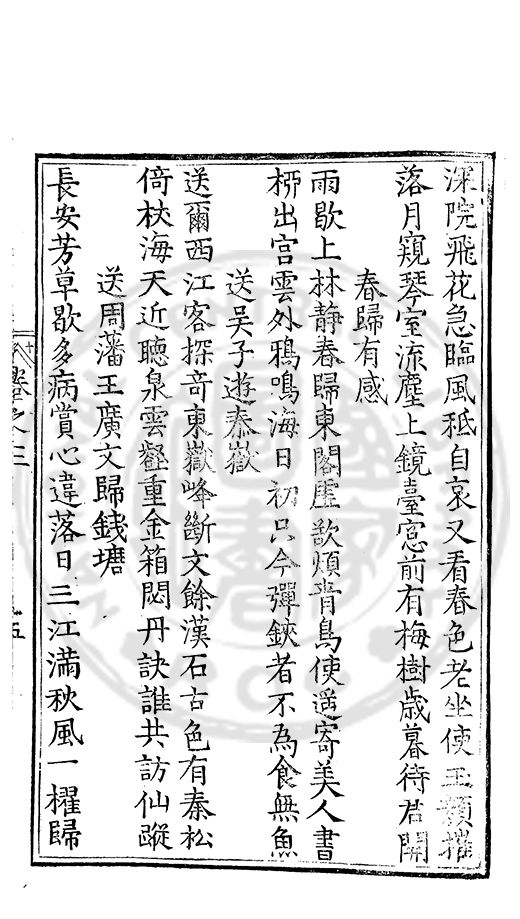 深院飛花急臨風秪自哀又看春色老坐使玉顏摧
落月窺琴室流塵上鏡臺窓前有梅樹歲暮待君開
春歸有感
雨歇上林靜春歸東閣虛欲煩青鳥使遥寄美人書
栁出宮雲外鴉鳴海日初只今彈鋏者不為食無魚
送吴子遊泰嶽
送爾西江客探竒東嶽峰斷文餘漢石古色有秦松
倚杖海天近聽泉雲壑重金箱閟丹訣誰共訪仙蹤
送周藩王廣文歸錢塘
長安芳草歇多病賞心違落日三江滿秋風一櫂歸
卷之三